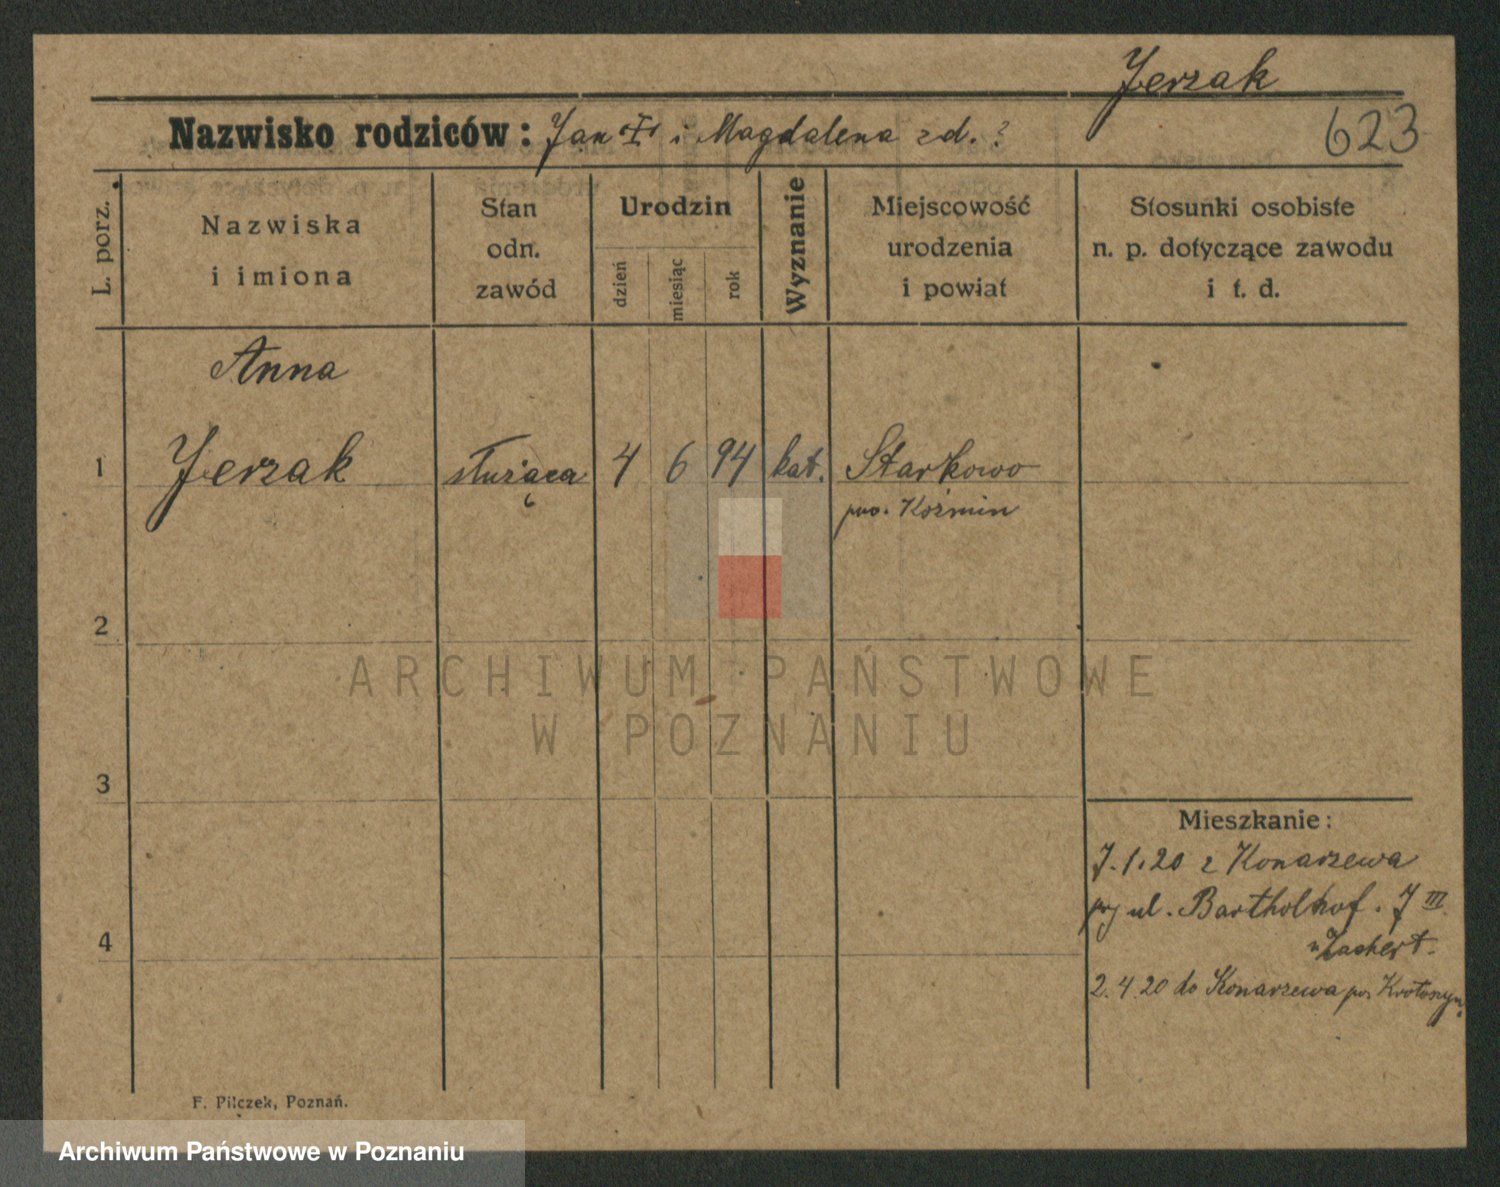 Jerzak
Nazwisko rodziców: Jan i Magdalena zd. ?
623
L. porz.
Nazwiska
i imiona
Stan
odn.
zawód
Urodzin
dzień
miesiąc
rok
Wyznanie
Miejscowość
urodzenia
i powiat
Stosunki osobiste
n. p. dotyczące zawodu
i t. d.
Anna
1 Jerzak służąca 4 6 94 kat. Starkowo
pow. Koźmin
2
ARCHIWUM PAŃSTWOWE
W POZNANIU
3
Mieszkanie:
7.1.20 z Konarzewa
ul. Bartholdhof. 7 III
Zachert.
4
2.4.20 do Konarzewa Krotoszyn
F. Pilczek, Poznań.
Archiwum Państwowe w Poznaniu